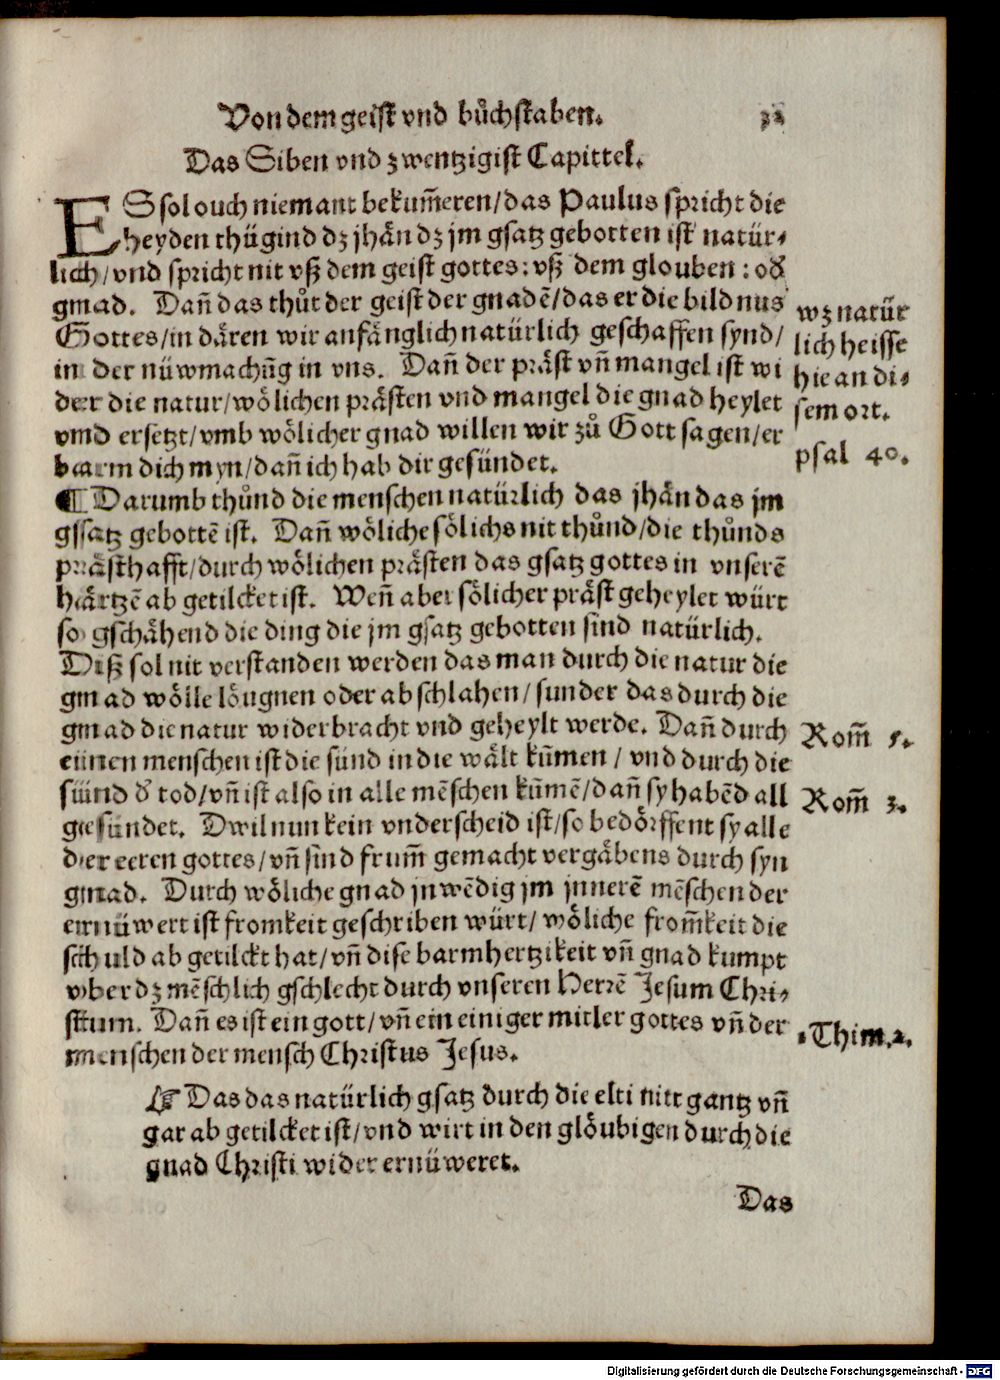 Von dem geist vnd bůchstaben. 32
Das Siben vnd zwentzigist Capittel.
ES sol ouch niemant bekum̃eren/das Paulus spricht die
heyden thügind dz jhän dz jm gsatz gebotten ist natür⸗
lich/vnd spricht nit vß dem geist gottes: vß dem glouben: oď
gnad. Dañ das thůt der geist der gnadẽ/das er die bildnus
Gottes/in dären wir anfänglich natürlich geschaffen synd/
in der nüwmachũg in vns. Dañ der präst vñ mangel ist wi
der die natur/wölichen prästen vnd mangel die gnad heylet
vnd ersetzt/vmb wölicher gnad willen wir zů Gott sagen/er
barm dich myn/dañ ich hab dir gesündet.
¶ Darumb thůnd die menschen natürlich das jhän das jm
gsatz gebottẽ ist. Dañ wöliche sölichs nit thůnd/die thůnds
prästhafft/durch wölichen prästen das gsatz gottes in vnserẽ
härtzẽ ab getilcket ist. Weñ aber sölicher präst geheylet würt
so gschähend die ding die jm gsatz gebotten sind natürlich.
Diß sol nit verstanden werden das man durch die natur die
gnad wölle löugnen oder abschlahen/sunder das durch die
gnad die natur widerbracht vnd geheylt werde. Dañ durch
einen menschen ist die sünd in die wält kum̃en/vnd durch die
sünd ď tod/vñ ist also in alle mẽschen kũmẽ/dañ sy habẽd all
gesündet. Dwil nun kein vnderscheid ist/so bedörffent sy alle
der eeren gottes/vñ sind frum̃ gemacht vergäbens durch syn
gnad. Durch wöliche gnad jnwẽdig jm jnnerẽ mẽschen der
ernüwert ist fromkeit geschriben würt/wöliche from̃keit die
schuld ab getilckt hat/vñ dise barmhertzikeit vñ gnad kumpt
vber dz mẽschlich gschlecht durch vnseren Herrẽ Jesum Chri⸗
stum. Dañ es ist ein gott/vñ ein einiger mitler gottes vñ der
menschen der mensch Christus Jesus.
☞ Das das natürlich gsatz durch die elti nitt gantz vñ
gar ab getilcket ist/vnd wirt in den glöubigen durch die
gnad Christi wider ernüweret.
Das
wz natür
lich heisse
hie an di⸗
sem ort.
psal 40.
Rom̃ 5.
Rom̃ 3.
1. Thim. 2.
Digitalisierung gefördert durch die Deutsche Forschungsgemeinschaft - DFG